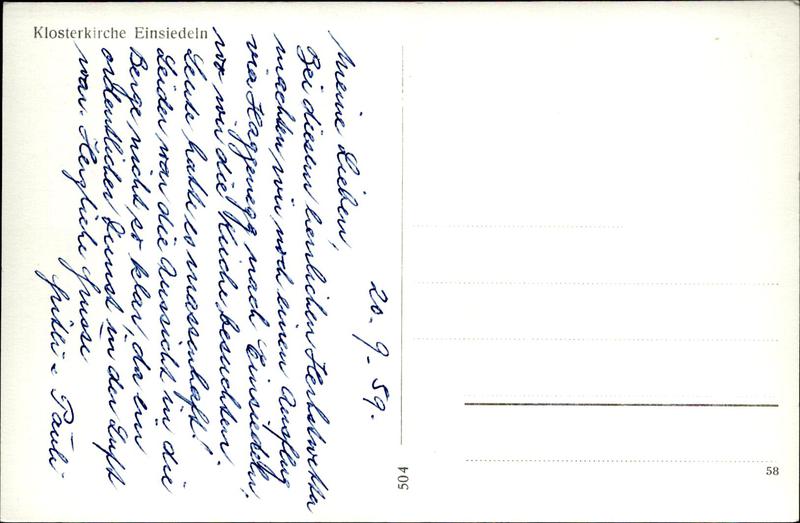 Klosterkirche Einsiedeln
20-9-59.
Meine Lieben,
Bei diesem herrlichen Herbstwetter
machten wir noch einen Ausflug
via Haggenegg nach Einsiedeln,
wo wir die Kirche besuchten.
Leute hatte es massenhaft!
Leider war die Aussicht in die
Berge nicht so klar, da ein
ordentlicher Dunst in der Luft
war. Herzliche Grüsse
Pauli
504
58